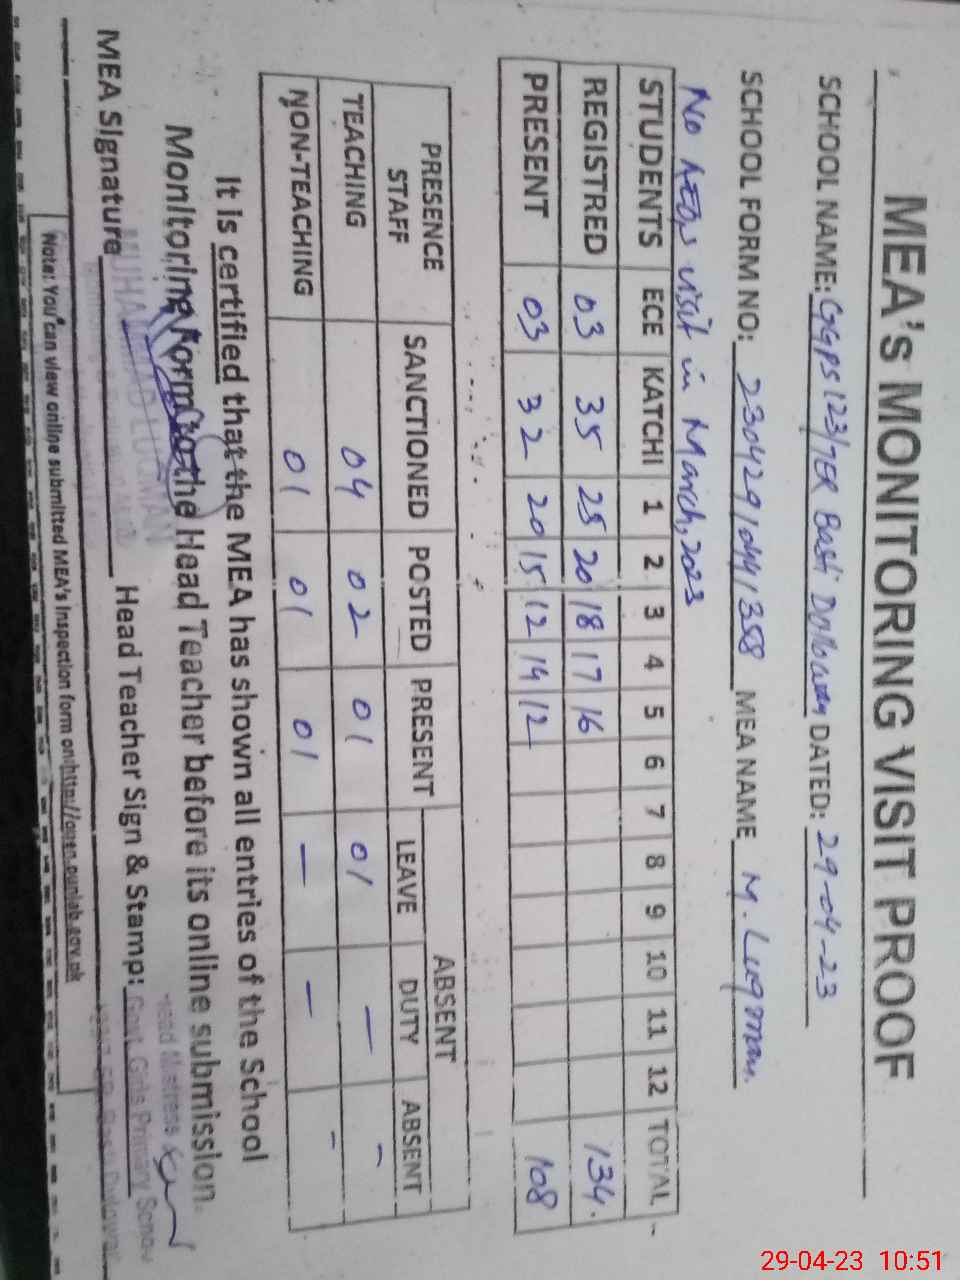 MEA'S MONITORING VISIT PROOF
SCHOOL NAME: GGPS 123/7ER Basti DATED: 29-04-23
SCHOOL FORM NO: MEA NAME M. Luqman.
No AEOs visit in March, 2023
STUDENTS ECE KATCHI 1 2 3 4 5 6 7 8 9 10 11 12 TOTAL
REGISTRED 03 35 25 20 18 17 16 134.
PRESENT 03 32 20 15 12 14 12 108
PRESENCE STAFF SANCTIONED POSTED PRESENT ABSENT
LEAVE DUTY ABSENT
TEACHING 04 02 01 01 - -
NON-TEACHING 01 01 01 - - -
It is certified that the MEA has shown all entries of the School
Monitoring Form to the Head Teacher before its online submission.
MEA Signature MUHAMMAD LUQMAN Head Teacher Sign & Stamp:
Head Mistress
Govt. Girls Primary School
Note: You can view online submitted MEA's Inspection form on http://open.punjab.gov.pk
29-04-23 10:51